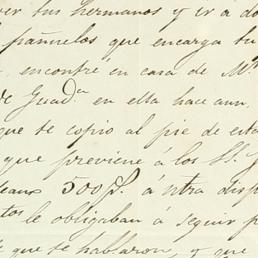 ver tus hermanos y ir a do
pañuelos que encarga tu
encontré en casa de Mr
de Guad.a en ella hace ann
que te copio al pie de esta
que previene á los SS.
eaux 500 f. á ntra disp
tos le obligaban á seguir p
que te hablaron, y que